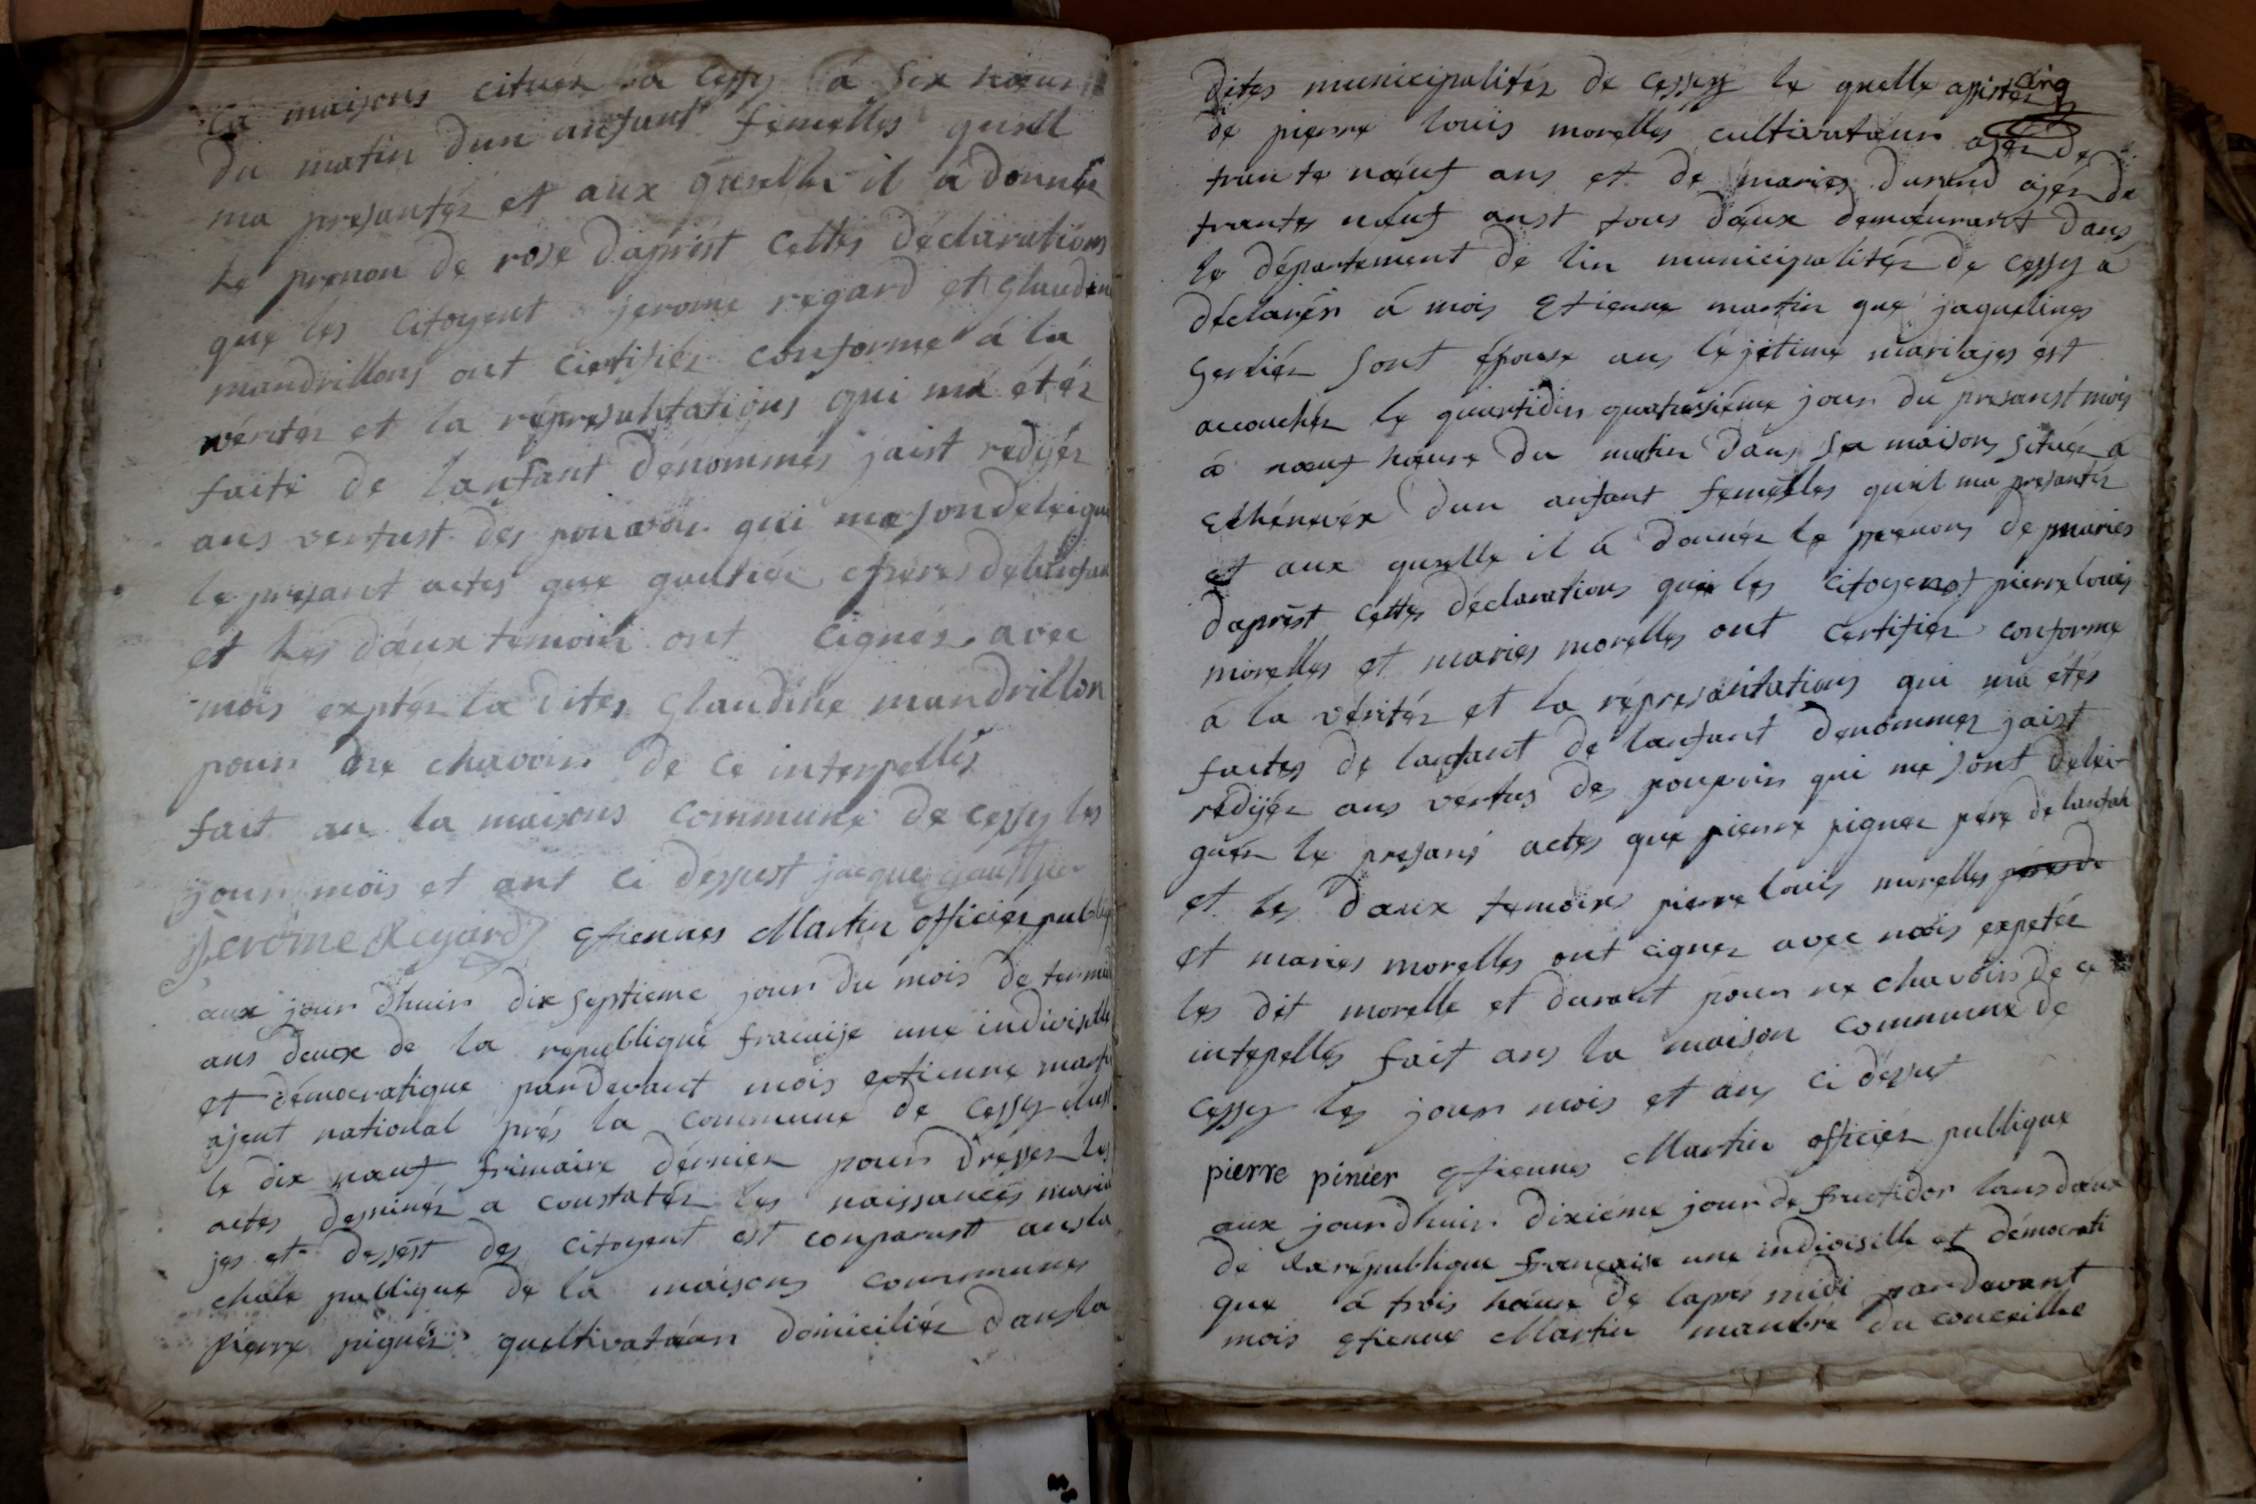 sa maisons cituer a cessy á six hœur
du matin dun anfant femelles quell
ma presantéz et aux quelle il á donnér
le prenon de rose daprést cettes déclarations
que les citoyent jerome regard et glaudine
mandrillons ont ciertifiér conforme á la
véritéz et la représantations qui ma étéz
faite de lanfant dénommés jaist redijéz
ans vertust des pouvoir qui me son deleigué
le presant actes que gualtiér péres delanfan
et les dáux temoin ont cignér avec
mois exptéz la dites glaudine mandrillon
pour ne chavoir de ce interpellés
fait an la maisons commune de cessy les
jour mois et ant ci dessust jacque gautthier
Jerôme Regard etiennes Martin officiér publique
aux jour dhuir dix septieme jour du mois de termid
ans deuxe de la republique francaise une indivisille
et démocratique pardevant mois etienne marti
ajent national prés la commune de cessy élust
le dix nœuf frimaire dérniér pour drésser les
actes dessinéz a constatéz les naissances maria
jes et dessést des citoyent est comparustt ansla
chale publique de la maisons communes
pierre pignér queltivatáur domiciliéz dansla
dites municipalitéz de cessy le quelle assistéz cinq
de pierre louis morelles cultivatœur ajér de
trante nœuf ans et de maries durand ajér de
trantes nœuf anst tous dáux demœurant dans
le département de lin municipalitéz de cessy a
déclarér á mois Etienne martin que jaquelines
gerliér sont épouse ans léjitime mariajes est
accouchéz le quartidis quatorsiéme jour du presanst mois
á nœuf hœure du matin dans sa maisons situér á
Ethénevéx dun anfant femelles quil ma presantéz
et aux quelle il á donnér le prenons de maries
daprést cettes déclarations que les citoyenst pierre louis
morelles et maries morelles ont certifiéz conforme
á la véritéz et la représantations qui ma étés
faites de lanfant de lanfant denommez jaist
redijéz ans vertus des pouvoir qui me sont delei
guér le presans actes que pierre pignér pére de lanfan
et les daux temoins pierre louis morelles
et maries morelles ont cignéz avec mois expetéz
les dit morelle et durant pour ne chavoir de ce
intepellés fait ans la maison commune de
cessy les jour mois et ans ci déssust
pierre pinier Etiennes Martin officiér publique
aux jourdhuir dixiéme jour de fructidor lans dœux
de la république francaise une indivisille et démocrati
que á trois hœure de laprés midi pardevant
mois Etienne Martin manbre du conceille